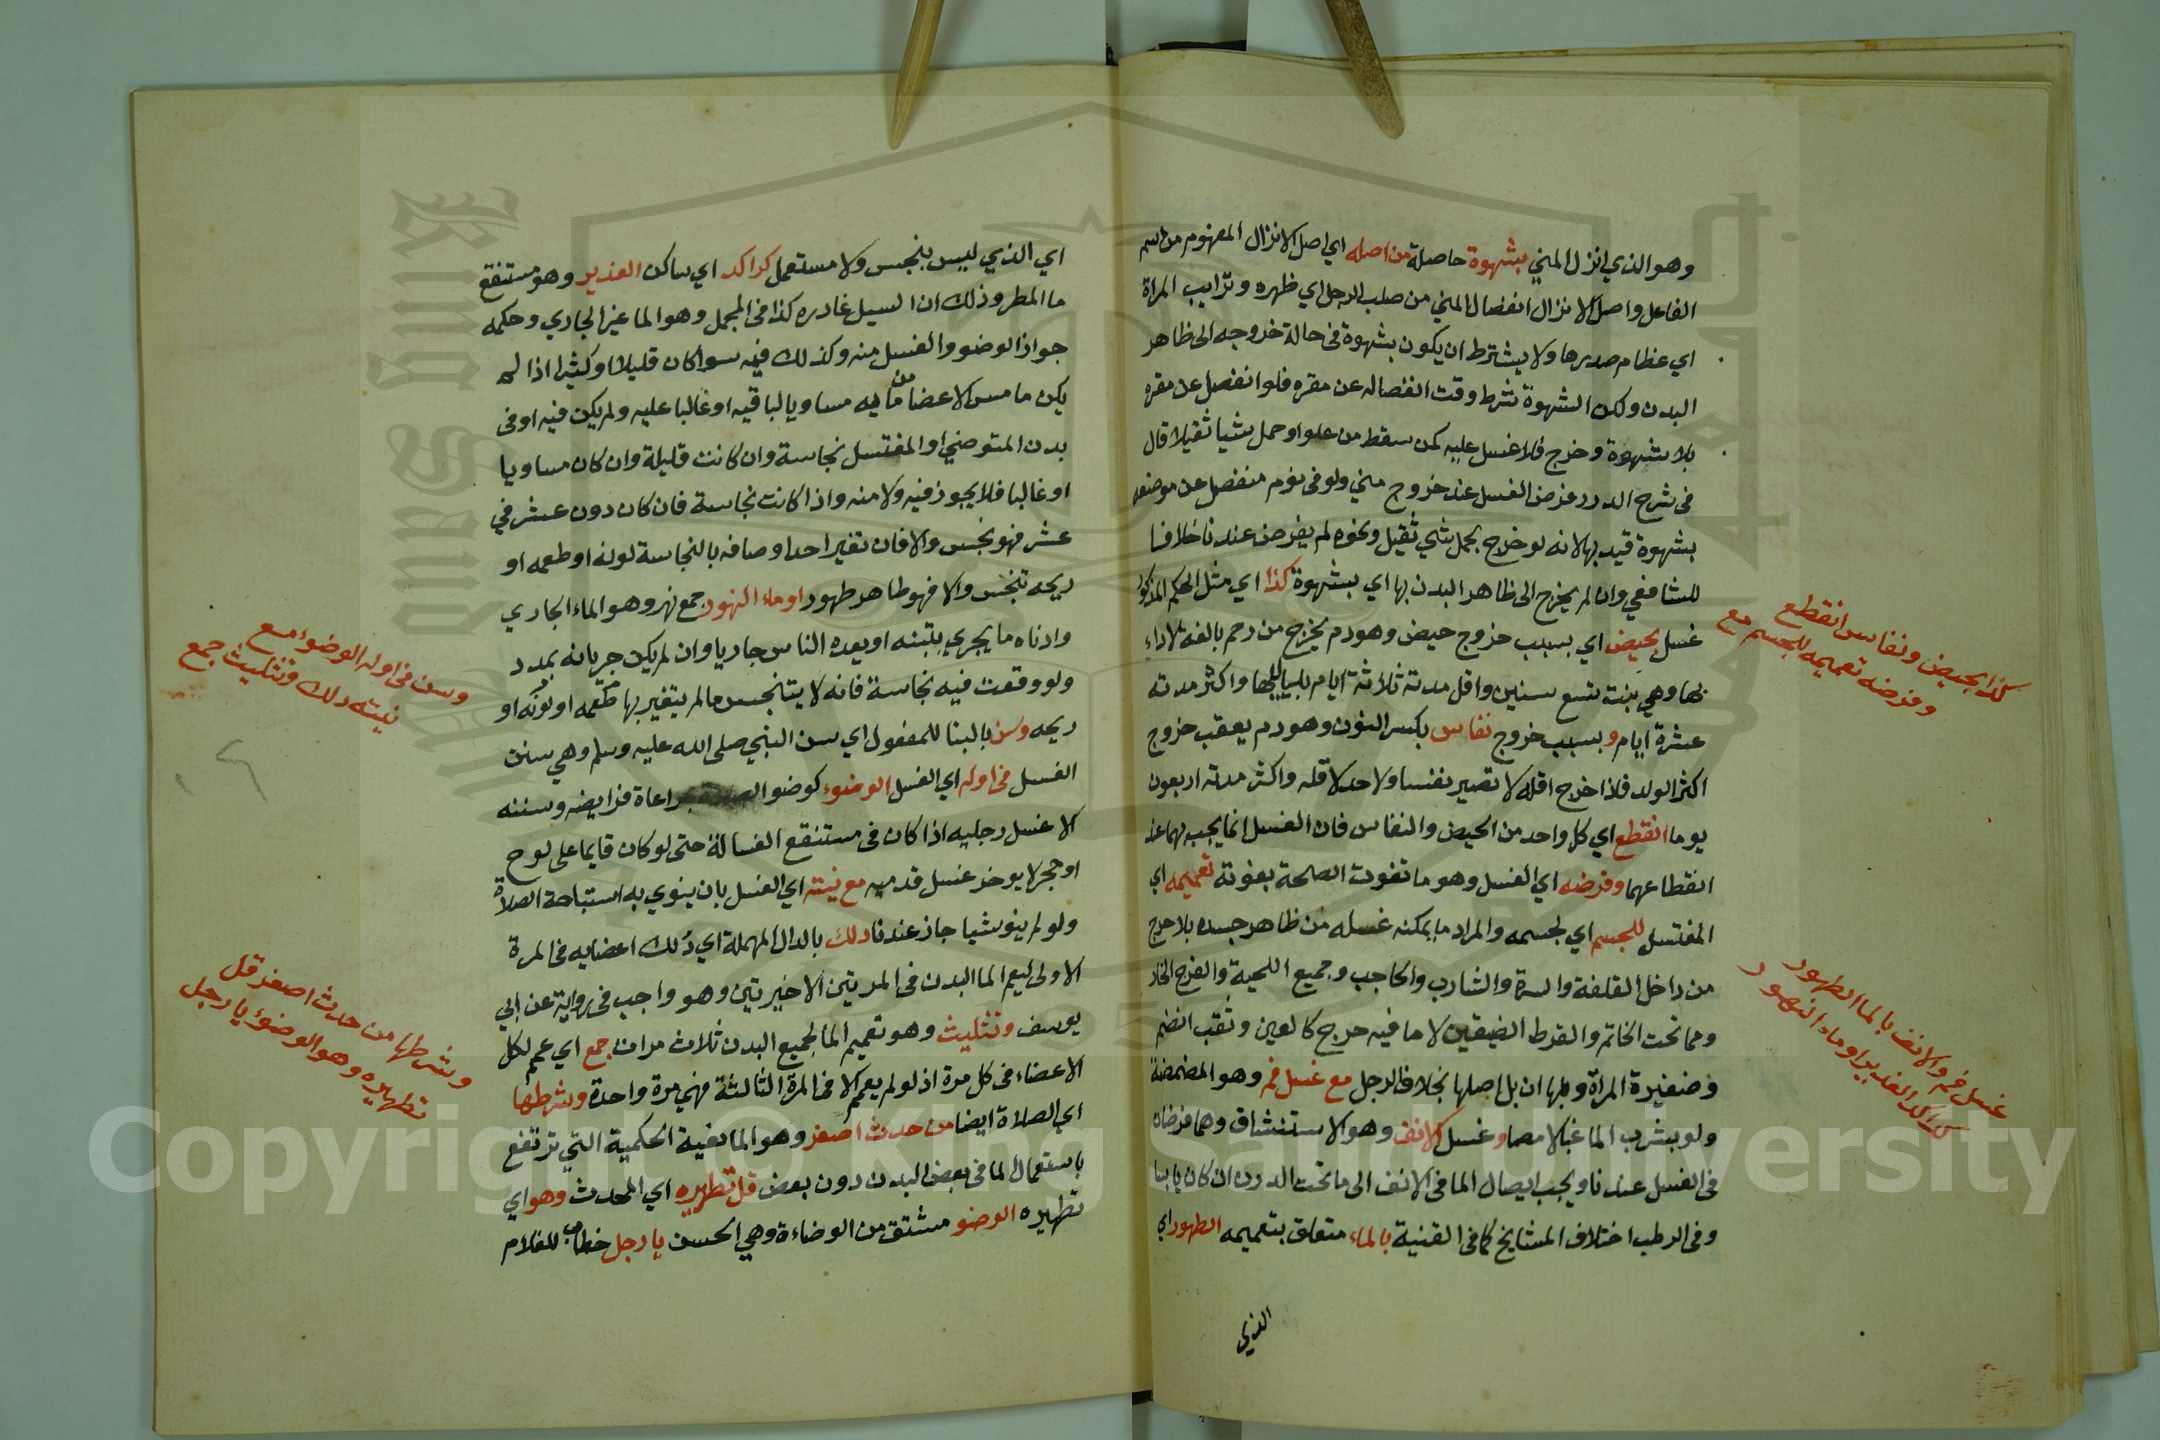 وهو الذي انزل المني بشهوة حاصلة من اصله اي اصل الانزال المفهوم من اسم
الفاعل واصل الانزال انفصال المني من صلب الرجل اي ظهره وترايب المراة
اي عظام صدرها ولا يشترط ان يكون بشهوة في حالة خروجه الى ظاهر
البدن ولكن الشهوة شرط وقت انفصاله عن مقره فلو انفصل عن مقره
بلا شهوة وخرج فلا غسل عليه كمن سقط من علو او حمل شيا ثقيلا قال
في شرح الدرر فرض الغسل عند خروج مني ولو في نوم منفصل عن موضعه
بشهوة قيد بها لانه لو خرج بحمل شي ثقيل ونحوه لم يفرض عندنا خلافا
للشافعي وان لم يخرج الى ظاهر البدن بها اي بشهوة كذا اي مثل الحكم المذكور
غسل بحيض اي بسبب خروج حيض وهو دم يخرج من رحم بالغة لا داء
بها وهي بنت تسع سنين واقل مدته ثلاثة ايام بلياليها واكثر مدته
عشرة ايام وبسبب خروج نفاس بكسر النون وهو دم يعقب خروج
اكثر الولد فلذا خرج اقله لا تصير نفسا ولا حد لاقله واكثر مدته اربعون
يوما انقطع اي كل واحد من الحيض والنفاس فان الغسل انما يجب بهما عند
انقطاعهما وفرضه اي الغسل وهو ما تفوت الصحة بفوته تعميمه اي
المغتسل للجسم اي لجسمه والمراد ما يمكنه غسله من ظاهر جسده بلا حرج
من داخل القلفة والسرة والشارب والحاجب وجميع اللحية والفرج الخارج
ومما تحت الخاتم والقرط الضيقين لا ما فيه حرج كالعين وثقب انضم
وضفيرة المراة وبلها ان بل اصلها بخلاف الرجل مع غسل فم وهو المضمضة
ولو بشرب الما غبا لا مصا وغسل الانف وهو الاستنشاق وهما فرضان
في الغسل عندنا ويجب ايصال الما في الانف الى ما تحت الدرن ان كان يابسا
وفي الرطب اختلاف المشايخ كما في القنية بالماء متعلق بتعميمه الطهور اي
الذي
كذا بحيض ونفاس انقطع
وفرضه تعميمه للجسم مع
غسل فم والانف بالما الطهور
كراكد الغدير او ماء النهور
اي الذي ليس بنجس ولا مستعمل كراكد اي ساكن الغدير وهو مستنقع
ما المطر وذلك ان السيل غادره كذا في المجمل وهو الما غير الجاري وحكمه
جواز الوضو والغسل منه وكذلك فيه سوا كان قليلا او كثيرا اذا لم
يكن ما مس الاعضا من مايه مساويا لباقيه او غالبا عليه ولم يكن فيه او في
بدن المتوضي او المغتسل نجاسة وان كانت قليلة وان كان مساويا
او غالبا فلا يجوز فيه ولا منه واذا كانت نجاسة فان كان دون عشر في
عشر فهو نجس والا فان تغير احد اوصافه بالنجاسة لونه او طعمه او
ريحه تنجس والا فهو طاهر طهور او ماء النهور جمع نهر وهو الماء الجاري
وادناه ما يجري بتبنه او يعده الناس جاريا وان لم يكن جريانه بمدد
ولو وقعت فيه نجاسة فانه لا يتنجس ما لم يتغير بها طعمه او لونه او
ريحه وسن بالبنا للمفعول اي سن النبي صلى الله عليه وسلم وهي سنت
الغسل في اوله اي الغسل الوضوء كوضو الصلاة بمراعاة فرايضه وسننه
الا غسل رجليه اذا كان في مستنقع الغسالة حتى لو كان قايما على لوح
او حجر لا يوخر غسل قدميه مع نيته اي الغسل بان ينوي به استباحة الصلاة
ولو لم ينو شيا جاز عندنا دلك بالدال المهملة اي دلك اعضايه في المرة
الاولى ليعم الما البدن في المرتين الاخيرتين وهو واجب في رواية عن ابي
يوسف وتثليث وهو تعميم الما لجميع البدن ثلاث مرات جمع اي عمم لكل
الاعضاء في كل مرة اذ لو لم يعم الا في المرة الثالثة فهي مرة واحدة وشرطها
اي الصلاة ايضا من حدث اصغر وهو المانعية الحكمية التي ترتفع
باستعمال الما في بعض البدن دون بعض قل تطهيره اي المحدث وهو اي
تطهيره الوضو مشتق من الوضاءة وهي الحسن يا رجل خطاب للغلام
وسن في اوله الوضوء مع
نيته دلك وتثليث جمع
وشرطها من حدث اصغر قل
تطهيره وهو الوضوء يا رجل
Copyright © King Saud University